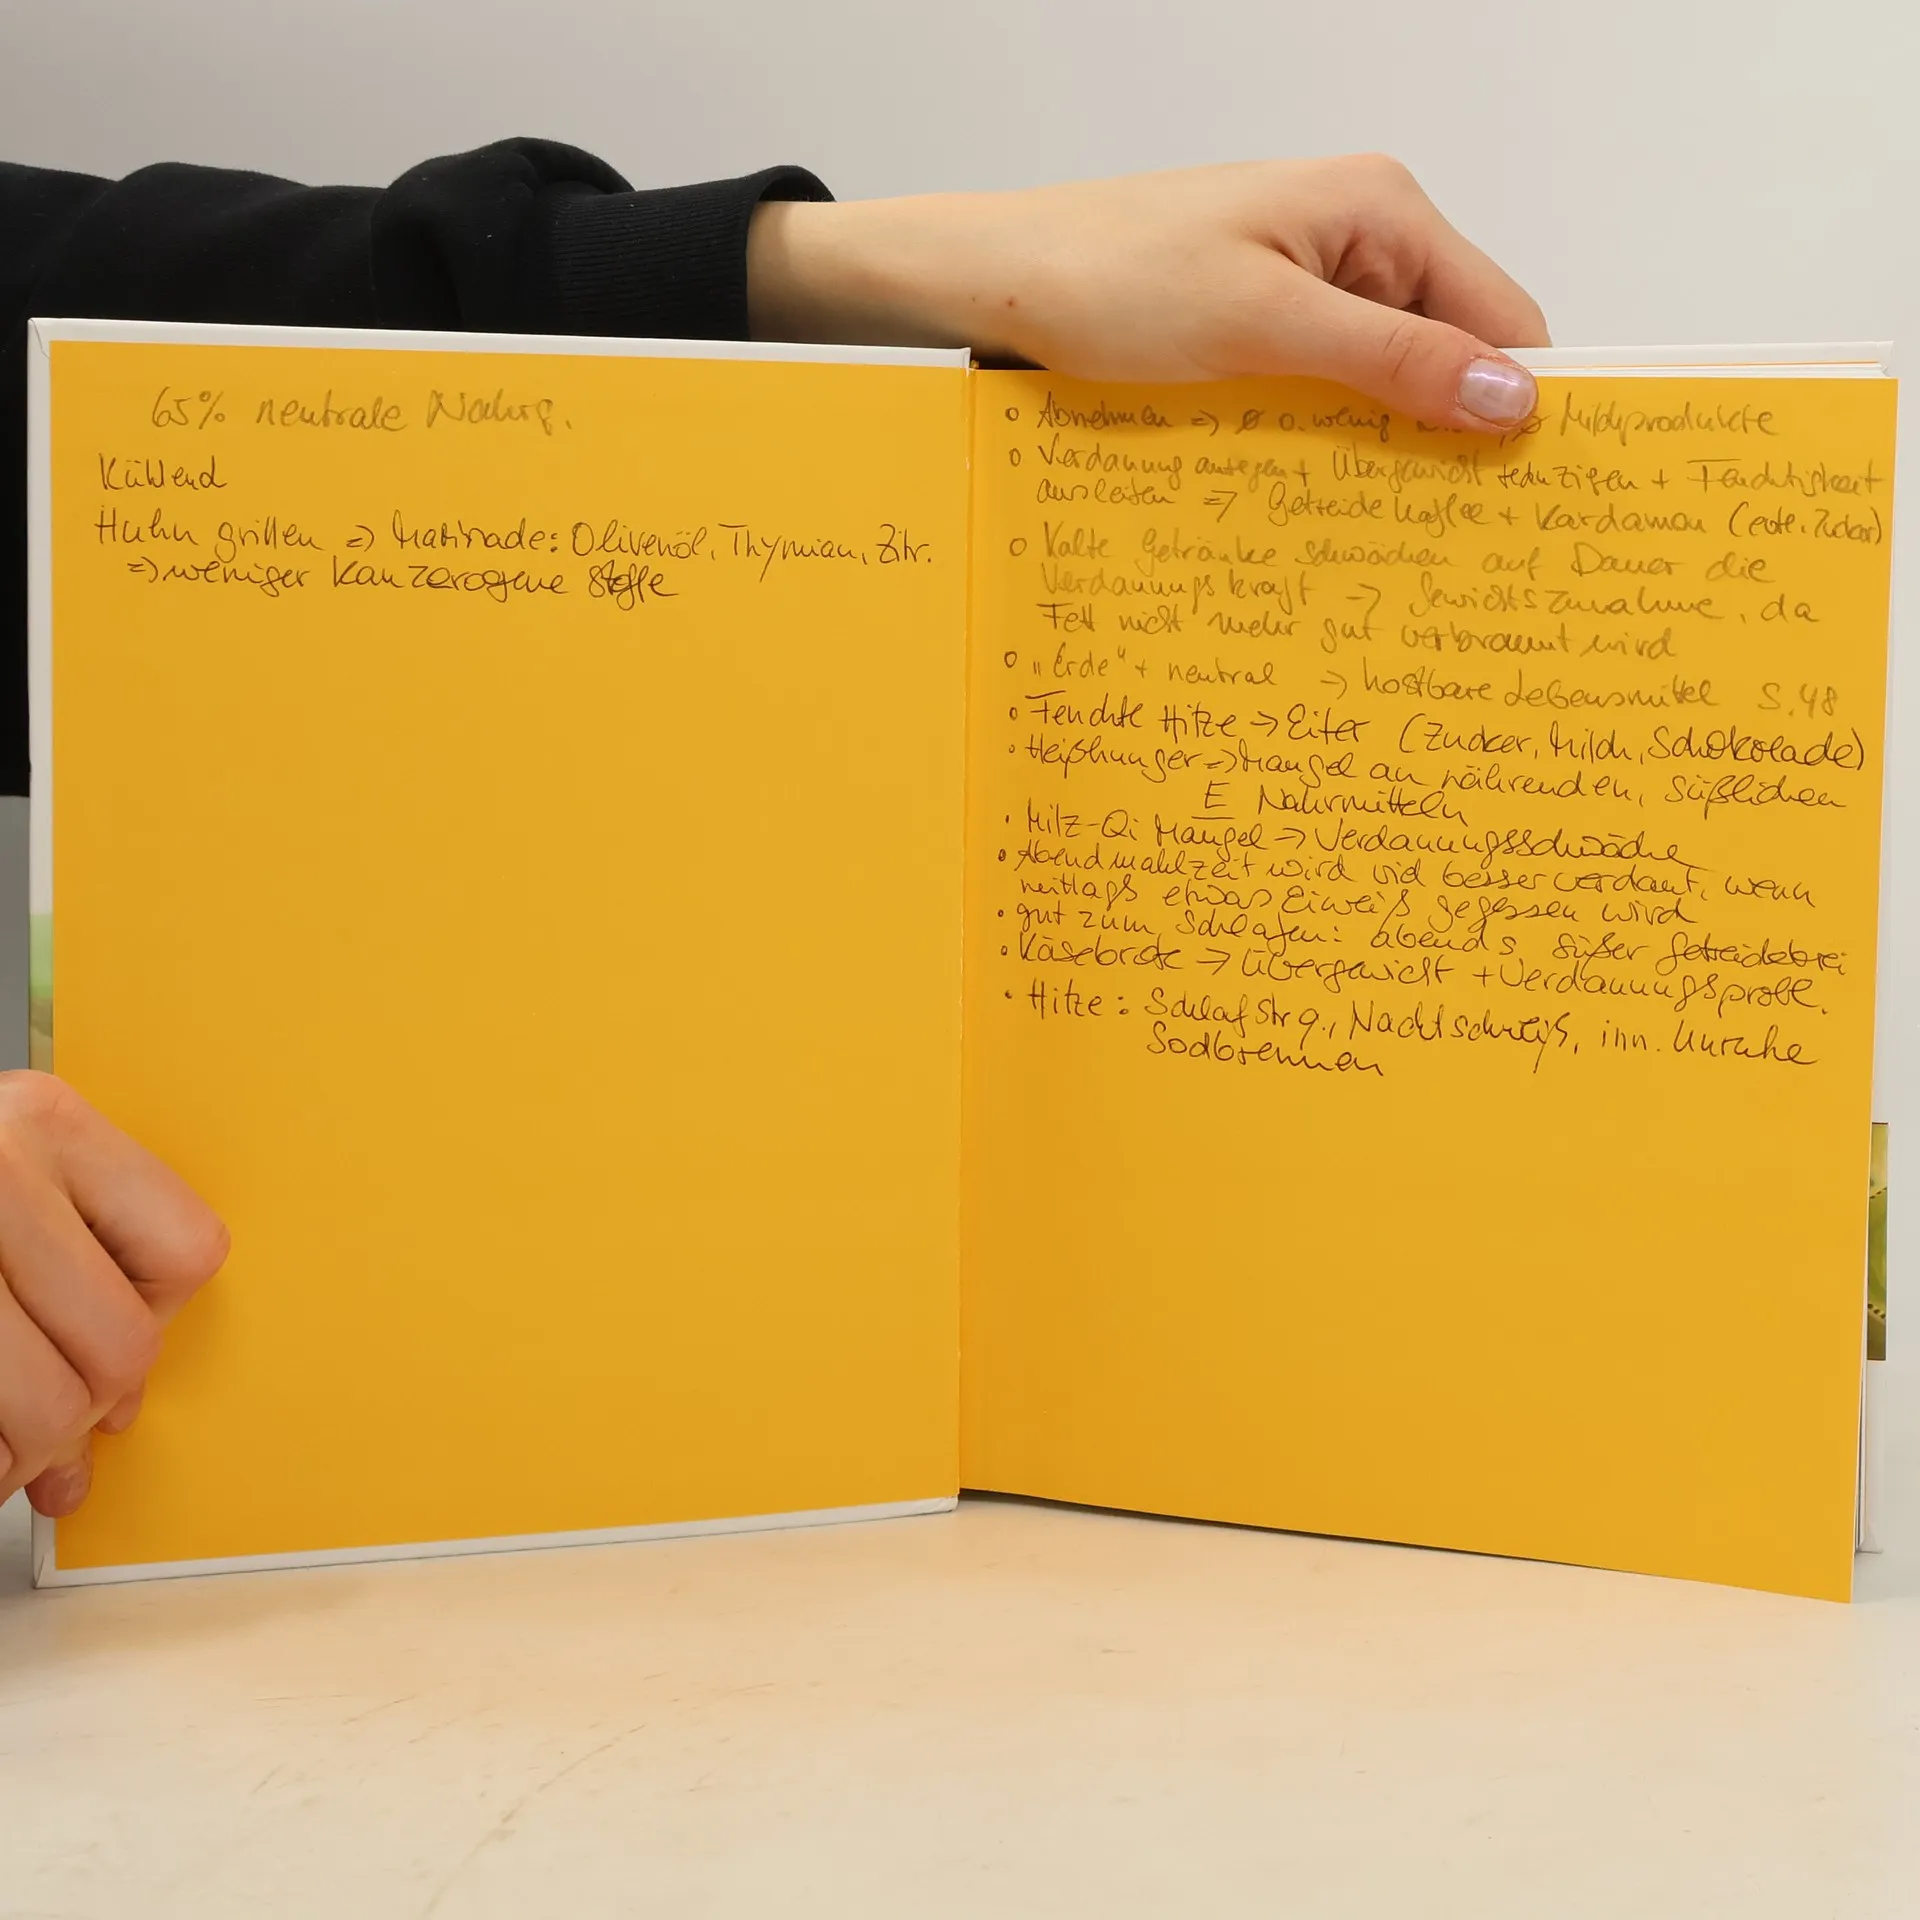 65% neutrale Nahrg.
Kühlend
Huhn grillen => Marinade: Olivenöl, Thymian, Zitr.
=> weniger kanzerogene Stoffe
o Abnehmen => ø o. wenig , ø Milchprodukte
o Verdauung anregen + Übergewicht reduzigen + Feuchtigkeit
ausleiten => Getreidekaffee + Kardamon (evtl. Zucker)
o Kalte Getränke schwächen auf Dauer die
Verdauungskraft => Gewichtszunahme, da
Fett nicht mehr gut verbrannt wird
o "Erde" + neutral => kostbare Lebensmittel S. 48
• Feuchte Hitze => Eiter (Zucker, Milch, Schokolade)
• Heißhunger => Mangel an nährenden, süßlichen
E Nahrmitteln
• Milz-Qi Mangel => Verdauungsschwäche
• Abendmahlzeit wird viel besser verdaut, wenn
mittags etwas Eiweiß gegessen wird
• gut zum Schlafen: abends süßer Getreidebrei
• Käsebrote => Übergewicht + Verdauungsprobl.
• Hitze: Schlafstrg., Nachtschweiß, inn. Unruhe
Sodbrennen